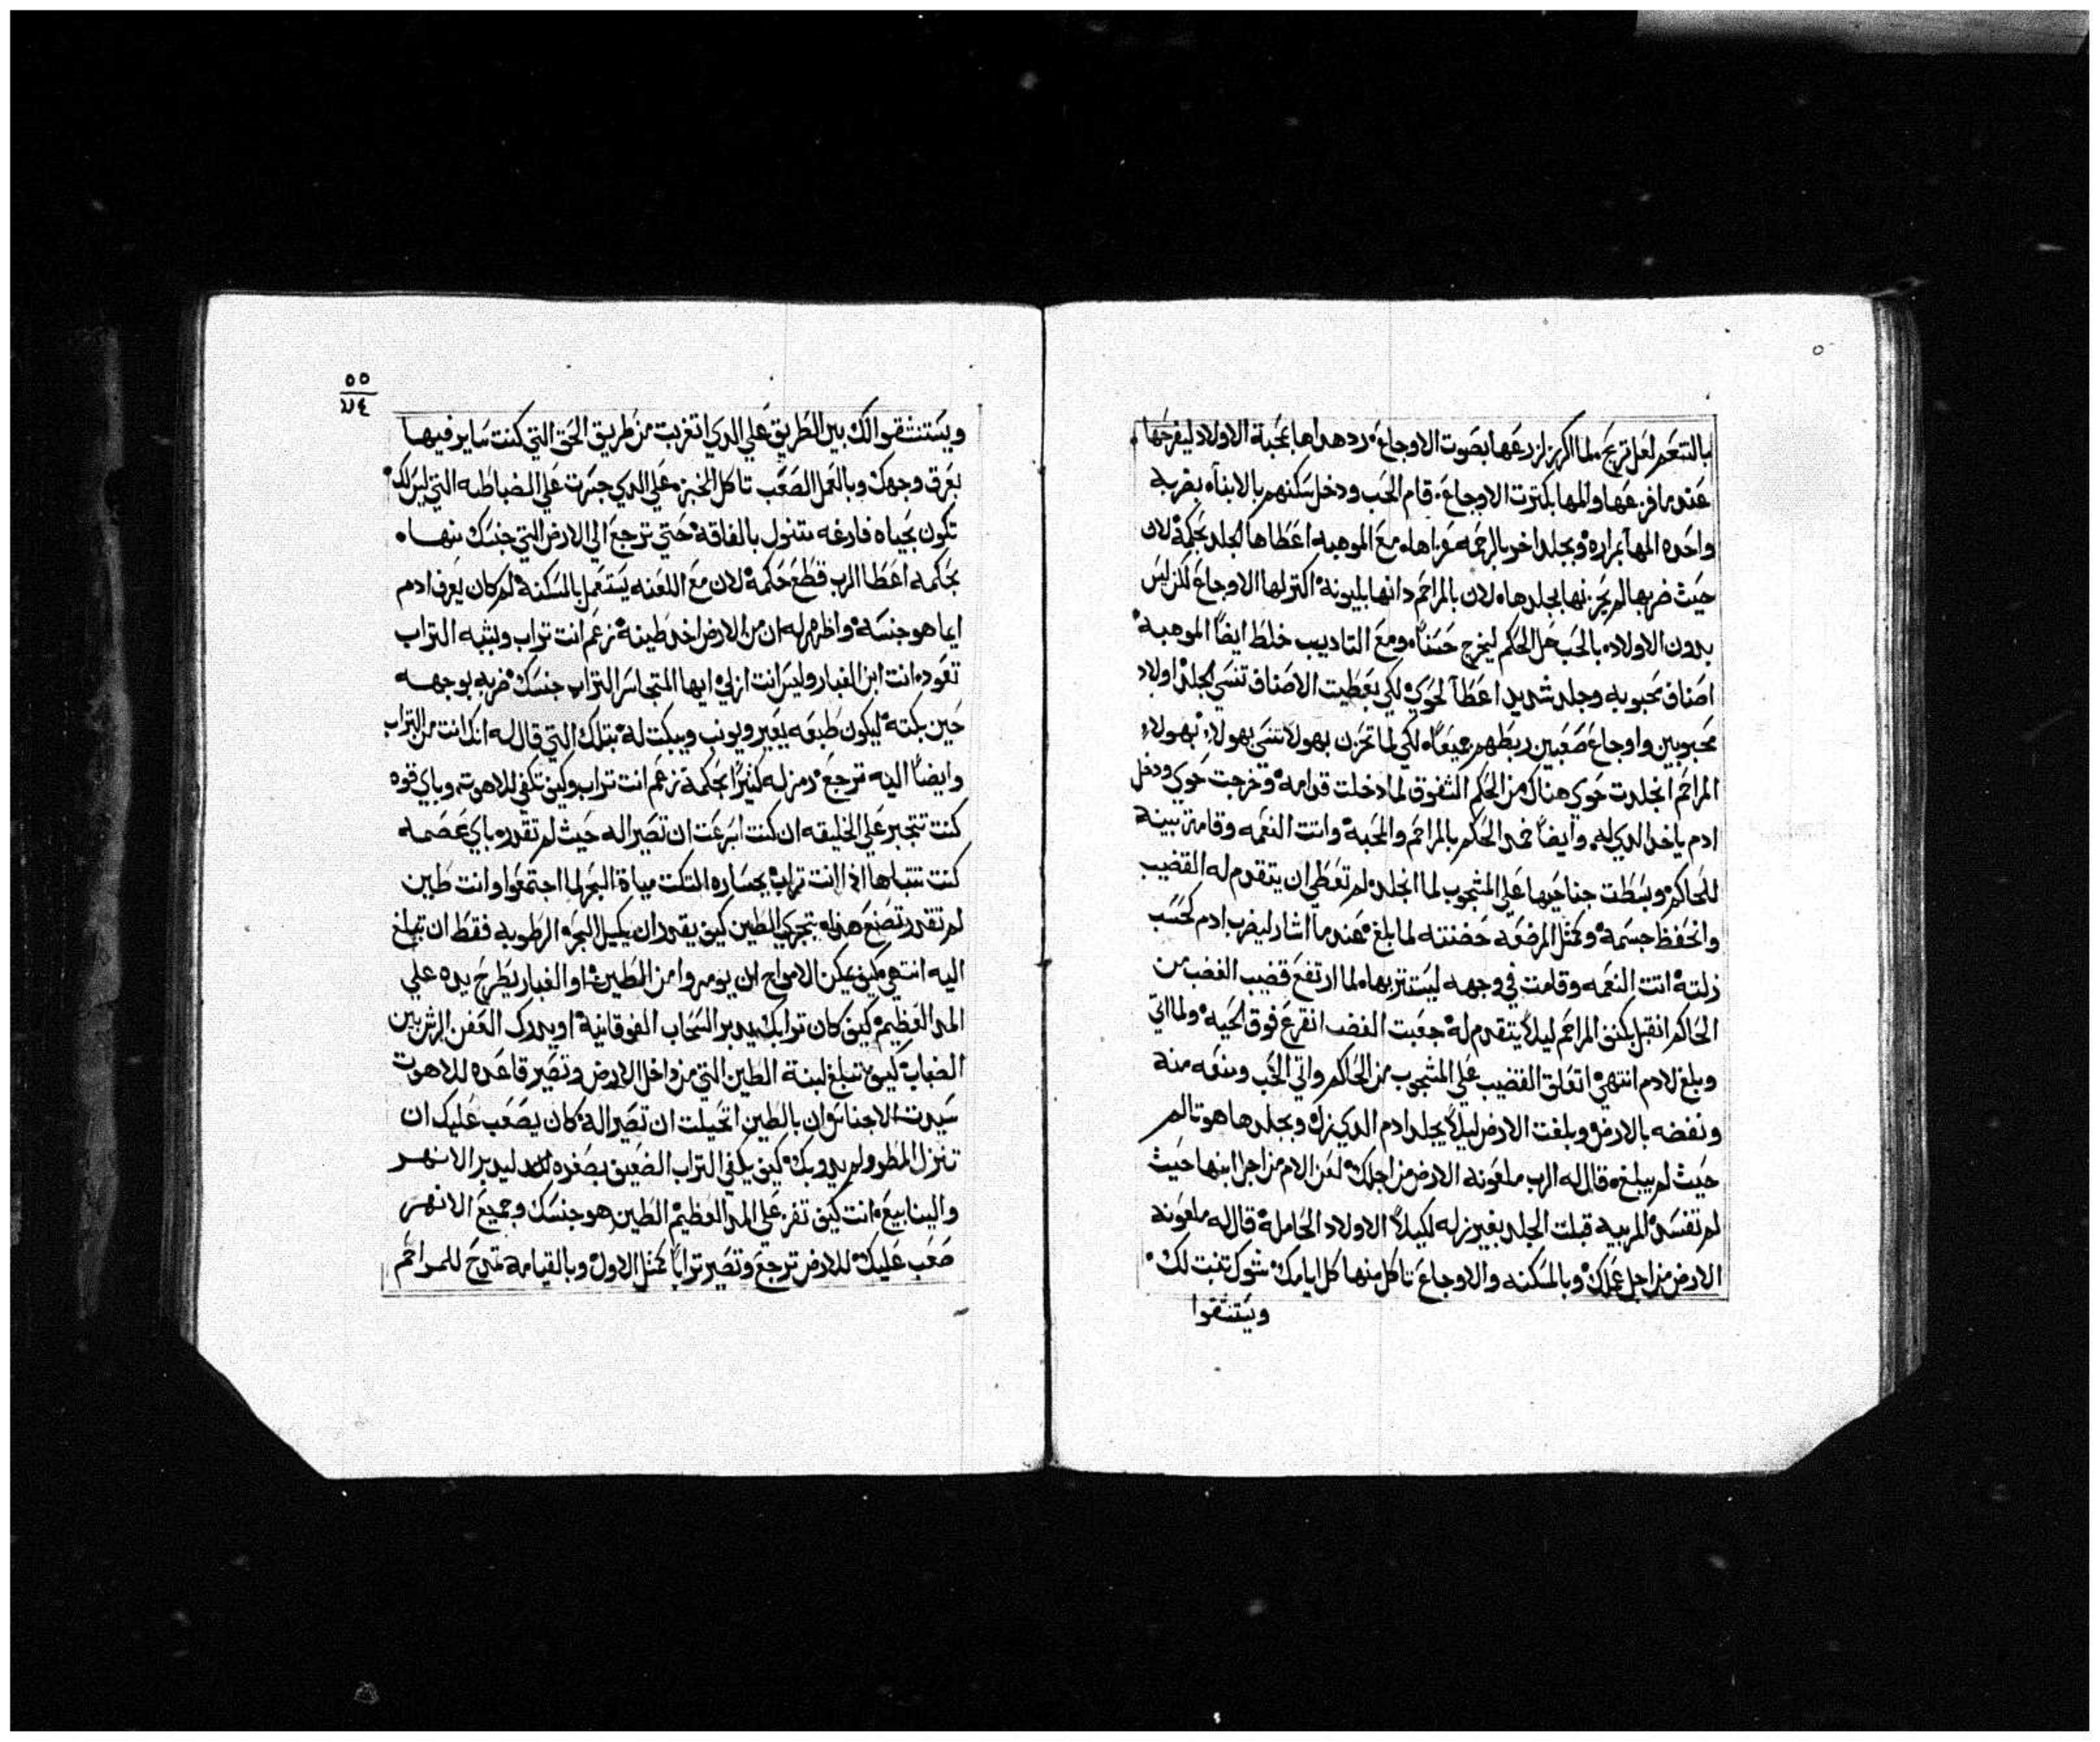 بالتنعم لعل تربح. لما اكرز لزرعها بصوت الاوجاع. رد هداها بمحبة الاولاد ليفرحها
عندما فزعها والمها بكترت الاوجاع. قام الحب ودخل سكنهم بالابناء بضربه
واحده المها بمراره وبجلد اخر بالرحمه عزاها. مع الموهبه اعطاها الجلد بحكمة لان
حيث ضربها لم يحزنها بجلدها. لان بالمراحم دانها بليونة اكتر لها الاوجاع لكن ليس
بدون الاولاد. بالحب حل الحكم ليخرج حسناً. ومع التاديب خلط ايضاً الموهبة
اصناف محبوبه وجلد شديد اعطا لحوي لكي بعطيت الاصناف تنسي الجلد اولاد
محبوبين واوجاع صعبين ربطهم جميعاً. لكي لما تحزن بهولا تنسي بهولا. بهولا
المراحم انجلدت حوي هناك من الحكم الشفوق لما دخلت قدامه وخرجت حوي ودخل
ادم ياخد الدي له. وايضاً خمد الحكم بالمراحم والمحبة واتت النعمه وقامت بينه
للحاكم وبسطت جناحيها علي المشجوب لما انجلد. لم تعطي ان يتقدم له القضيب
وانحفظ جسمه وكمثل المرضعه حضنته لما بلغ عندما اشار ليضرب ادم كحسب
زلته اتت النعمه وقامت في وجهه ليستتر بها. لما ارتفع قضيب الغضب من
الحاكم انقبل بكنف المراحم ليلا يتقدم له جعبت الغضب انقرع فوق الحيه ولما اتي
وبلغ لادم انتهي اتعلق القضيب علي المشجوب من الحاكم واتي الحب ومنعه منه
ونفضه بالارض وبلغت الارض ليلا يجلد ادم الدي زل وبجلدها هو تالم
حيث لم يبلغه قال له الرب ملعونه الارض من اجلك لعن الام من اجل ابنها حيث
لم تفسد المربيه قبلت الجلد بغير زله لكيلا الاولاد الحاملة قال له ملعونه
الارض من اجل عملك وبالمسكنه والاوجاع تاكل منها كل ايامك شوك تنبت لك
ويستنشقوا
٥٥
٧٤
ويستنشقوا لك بين الطريق علي الدي اتغربت من طريق الحق التي كنت ساير فيها
بعرق وجهك وبالعمل الصعب تاكل الخبز. علي الدي جسرت علي الضباطه التي ليس لك
تكون بحياه فارغه متنول بالفاقة حتي ترجع الي الارض التي جنسك منها.
بحكمه اعطا الرب قطع حكمة لان مع اللعنه يستعمل بالمسكنة لم كان يعرف ادم
ايما هو جنسه واظهر له ان من الارض اخد طينة زعم انت تراب ولشبه التراب
تعود. انت ابن الغبار وليس انت ازلي ايها المتجاسر التراب جنسك ضربه بوجهه
حين بكته ليكون طبعه يعير ويونب ويبكت له بتلك التي قال له انك انت من التراب
وايضاً اليه ترجع رمز له كثيراً بحكمة زعم انت تراب وكيف تكفي للاهوت وباي قوه
كنت تتجبر علي الخليقه ان كنت اسرعت ان تصير اله حيث لم تقدر. باي عصمه
كنت تتباها اذ انت تراب بجساره التكت مياة البحر لما اجتمعوا وانت طين
لم تقدر تصنع هذه يتجري الطين كيف يقدر ان يكيل البحر الرطوبه فقط ان تبلغ
اليه انتهي كيف يمكن الامواج ان يومروا من الطين. او الغبار يطرح يده علي
المد العظيم كيف كان ترابك يدبر السحاب الفوقانية او يدرك العفن الرش بين
الضباب كيف تبلغ لبنة الطين التي من داخل الارض وتصير قاعده للاهوت
سيدت الاجناس وان بالطين اتخيلت ان تصير اله كان يصعب عليك ان
تنزل المطر ولم يدوبك كيف يكفي التراب الضعيف بصغره ليدبر الانهر
والينابيع. انت كيف تفز علي المد العظيم الطين هو جنسك وجميع الانهر
صعب عليك للارض ترجع وتصير تراباً كمثل الاول وبالقيامه تمدح للمراحم